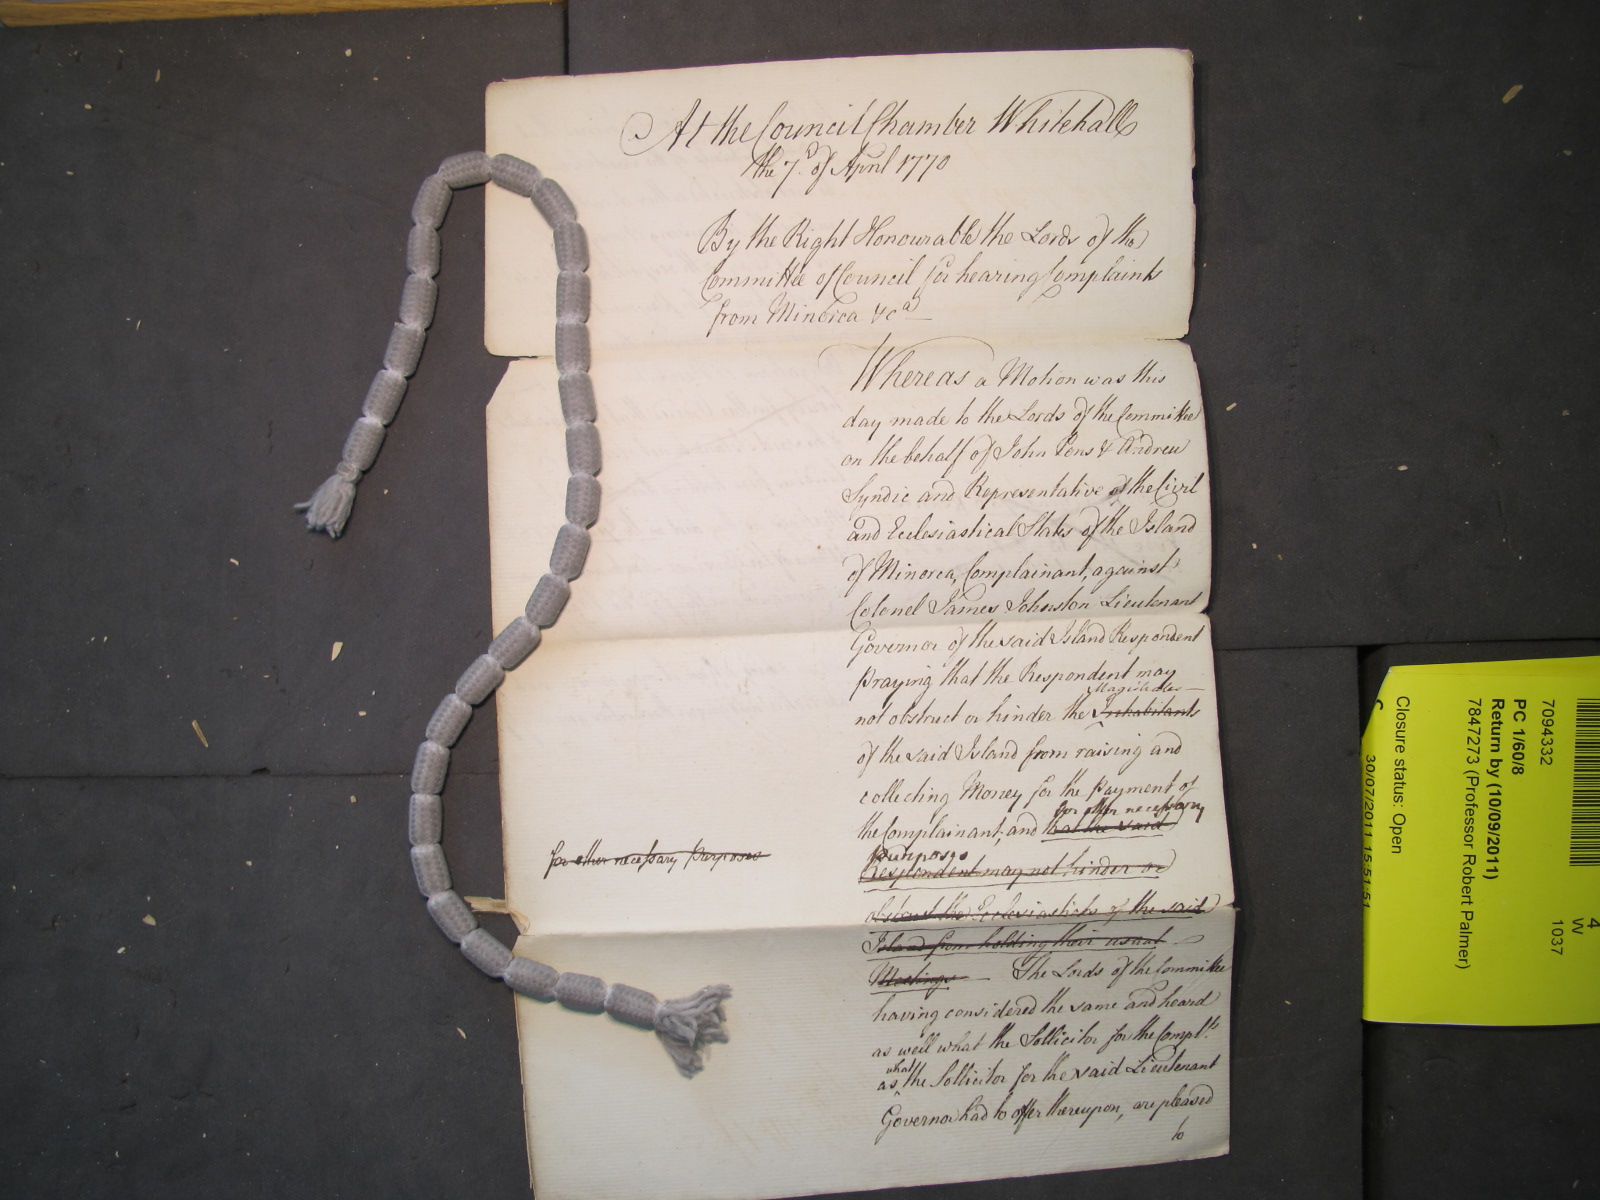 At the Council Chamber Whitehall
the 7.th of April 1770
By the Right Honourable the Lords of the
Committee of Council for hearing Complaints
from Minorca &ca
Whereas a Motion was this
day made to the Lords of the Committee
on the behalf of John Pons & Andreu
Syndic and Representative of the Civil
and Ecclesiastical States of the Island
of Minorca, Complainant, against
Colonel James Johnston Lieutenant
Governor of the said Island Respondent
praying that the Respondent may
Magistrates
not obstruct or hinder the Inhabitants
of the said Island from raising and
collecting Money for the Payment of
for other necessary
the Complainant, and that the said
for other necessary purposes
purposes
Respondent may not hinder or
obstruct the Ecclesiasticks of the said
Island from holding their usual
Meetings The Lords of the Committee
having considered the same and heard
as well what the Sollicitor for the Complts
what
as the Sollicitor for the said Lieutenant
Governor had to offer thereupon, are pleased
to
4
W
1037
7094332
PC 1/60/8
Return by (10/09/2011)
7847273 (Professor Robert Palmer)
Closure status: Open
30/07/2011 15:51:51